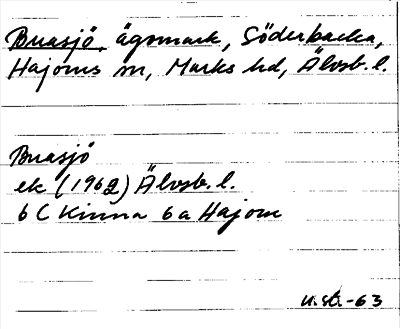 Buasjö, ägomark, Söderbacka,
Hajoms sn, Marks hd, Älvsb. l.
Buasjö
ek (1962) Älvsb. l.
6 C Kinna 6a Hajom
U.St.-63